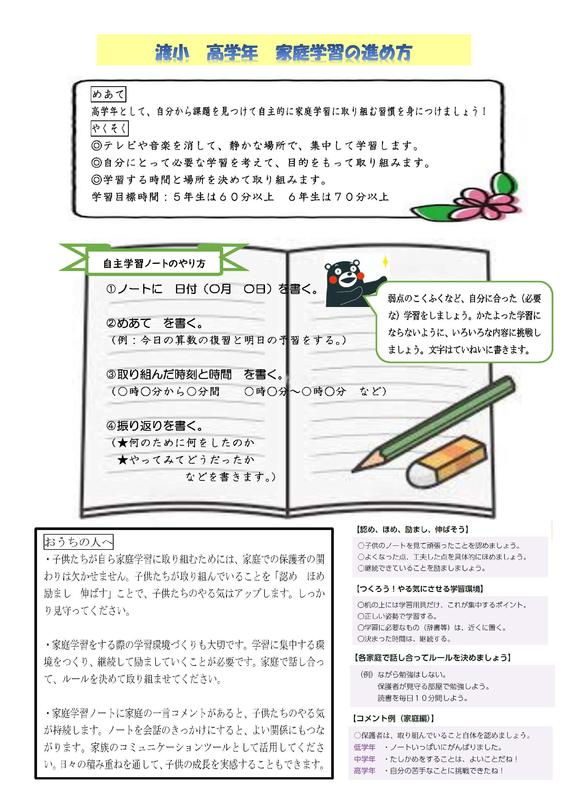 渡小　高学年　家庭学習の進め方
めあて
高学年として、自分から課題を見つけて自主的に家庭学習に取り組む習慣を身につけましょう！
やくそく
◎テレビや音楽を消して、静かな場所で、集中して学習します。
◎自分にとって必要な学習を考えて、目的をもって取り組みます。
◎学習する時間と場所を決めて取り組みます。
学習目標時間：５年生は６０分以上　６年生は７０分以上
自主学習ノートのやり方
①ノートに　日付（〇月　〇日）を書く。
②めあて　を書く。
（例：今日の算数の復習と明日の予習をする。）
③取り組んだ時刻と時間　を書く。
（〇時〇分から〇分間　　〇時〇分～〇時〇分　など）
④振り返りを書く。
（★何のために何をしたのか
★やってみてどうだったか
などを書きます。）
弱点のこくふくなど、自分に合った（必要
な）学習をしましょう。かたよった学習に
ならないように、いろいろな内容に挑戦し
ましょう。文字はていねいに書きます。
おうちの人へ
・子供たちが自ら家庭学習に取り組むためには、家庭での保護者の関
わりは欠かせません。子供たちが取り組んでいることを「認め　ほめ
励まし　伸ばす」ことで、子供たちのやる気はアップします。しっか
り見守ってください。
・家庭学習をする際の学習環境づくりも大切です。学習に集中する環
境をつくり、継続して励ましていくことが必要です。家庭で話し合っ
て、ルールを決めて取り組ませてください。
・家庭学習ノートに家庭の一言コメントがあると、子供たちのやる気
が持続します。ノートを会話のきっかけにすると、よい関係にもつな
がります。家族のコミュニケーションツールとして活用してくださ
い。日々の積み重ねを通して、子供の成長を実感することもできます。
【認め、ほめ、励まし、伸ばそう】
〇子供のノートを見て頑張ったことを認めましょう。
〇よくなった点、工夫した点を具体的にほめましょう。
〇継続できていることを励ましましょう。
【つくろう！やる気にさせる学習環境】
〇机の上には学習用具だけ、これが集中するポイント。
〇正しい姿勢で学習する。
〇学習に必要なもの（辞書等）は、近くに置く。
〇決まった時間は、継続する。
【各家庭で話し合ってルールを決めましょう】
（例）ながら勉強はしない。
保護者が見守る部屋で勉強しよう。
読書を毎日１０分間しよう。
【コメント例（家庭編）】
〇保護者は、取り組んでいること自体を認めましょう。
低学年　・ノートいっぱいにがんばりました。
中学年　・たしかめをすることは、よいことだね！
高学年　・自分の苦手なことに挑戦できたね！